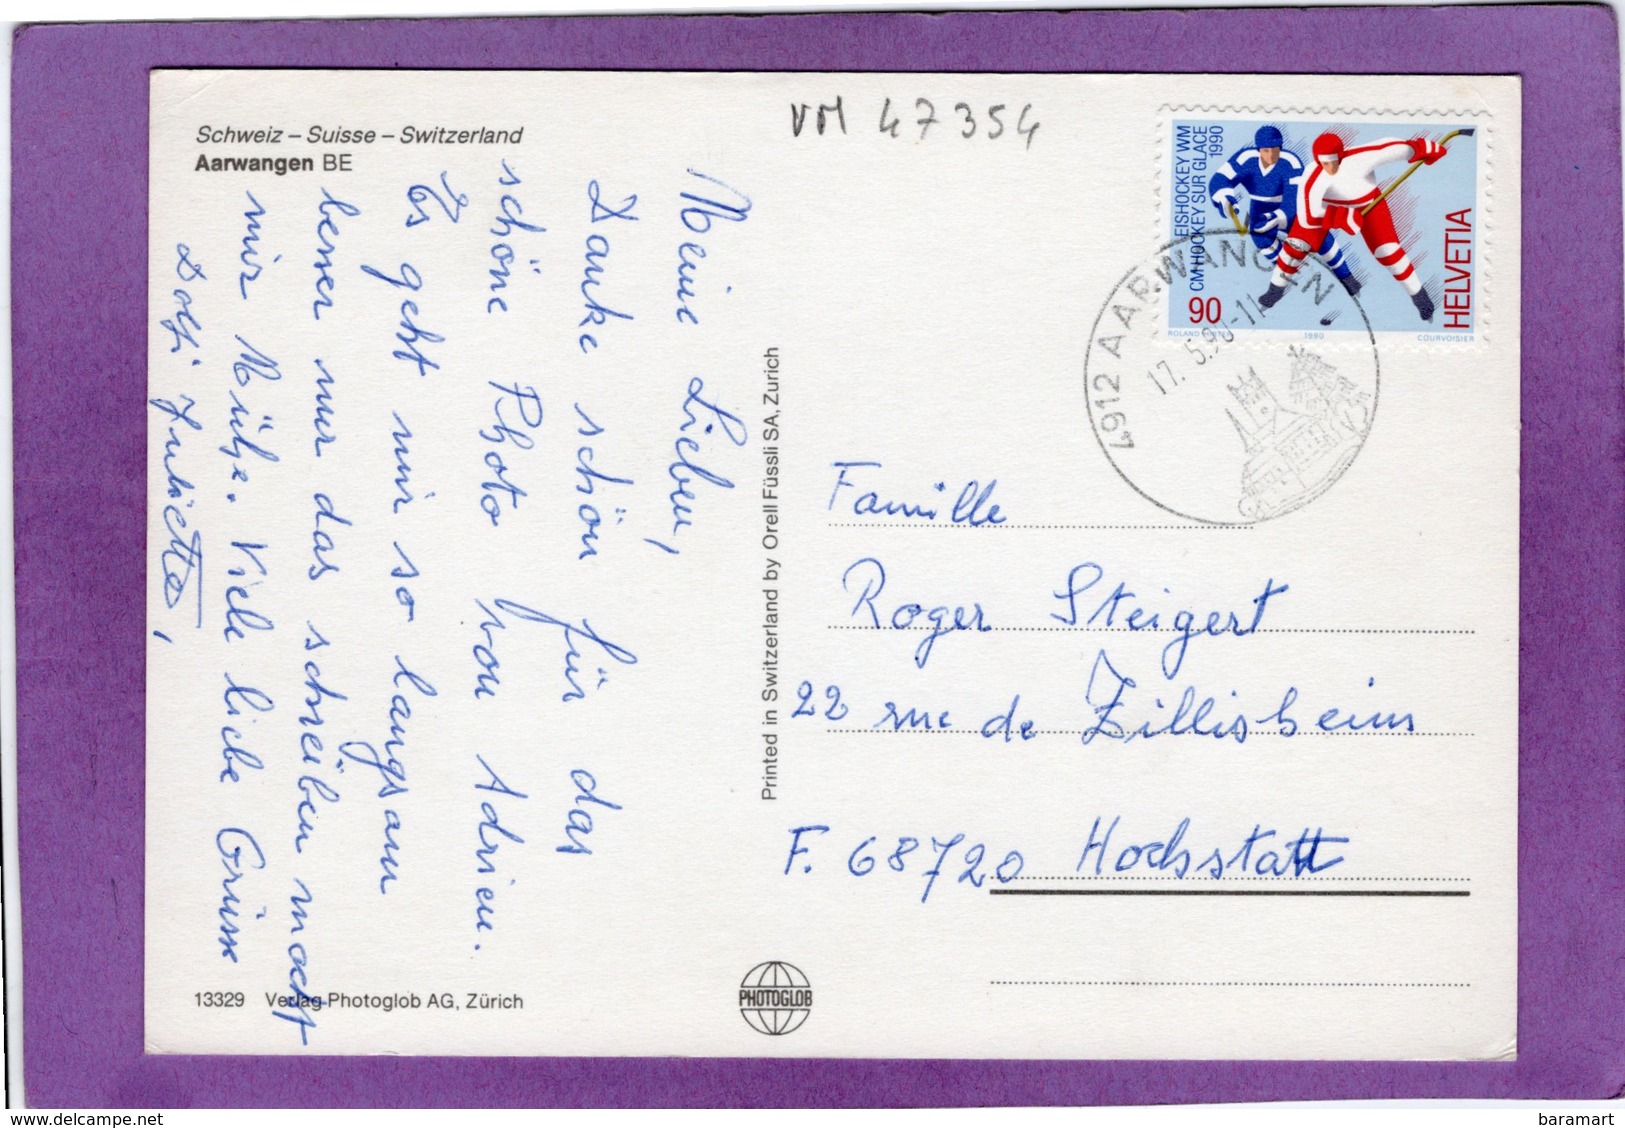 Schweiz – Suisse – Switzerland
Aarwangen BE
VM 47354
Meine Lieben,
Danke schön für das
schöne Photo von Adrien.
Es geht mir so langsam
besser nur das schreiben macht
mir Mühe. Viele liebe Grüsse
Dolfi Juliette,
13329 Verlag Photoglob AG, Zürich
Printed in Switzerland by Orell Füssli SA, Zurich
PHOTOGLOB
EISHOCKEY WM 1990
CM HOCKEY SUR GLACE
90
HELVETIA
1990
COURVOISIER
4912 AARWANGEN
17. 5.90-11
Famille
Roger Steigert
22 rue de Zillisheim
F. 68720 Hochstatt
delcampe.net
baramart